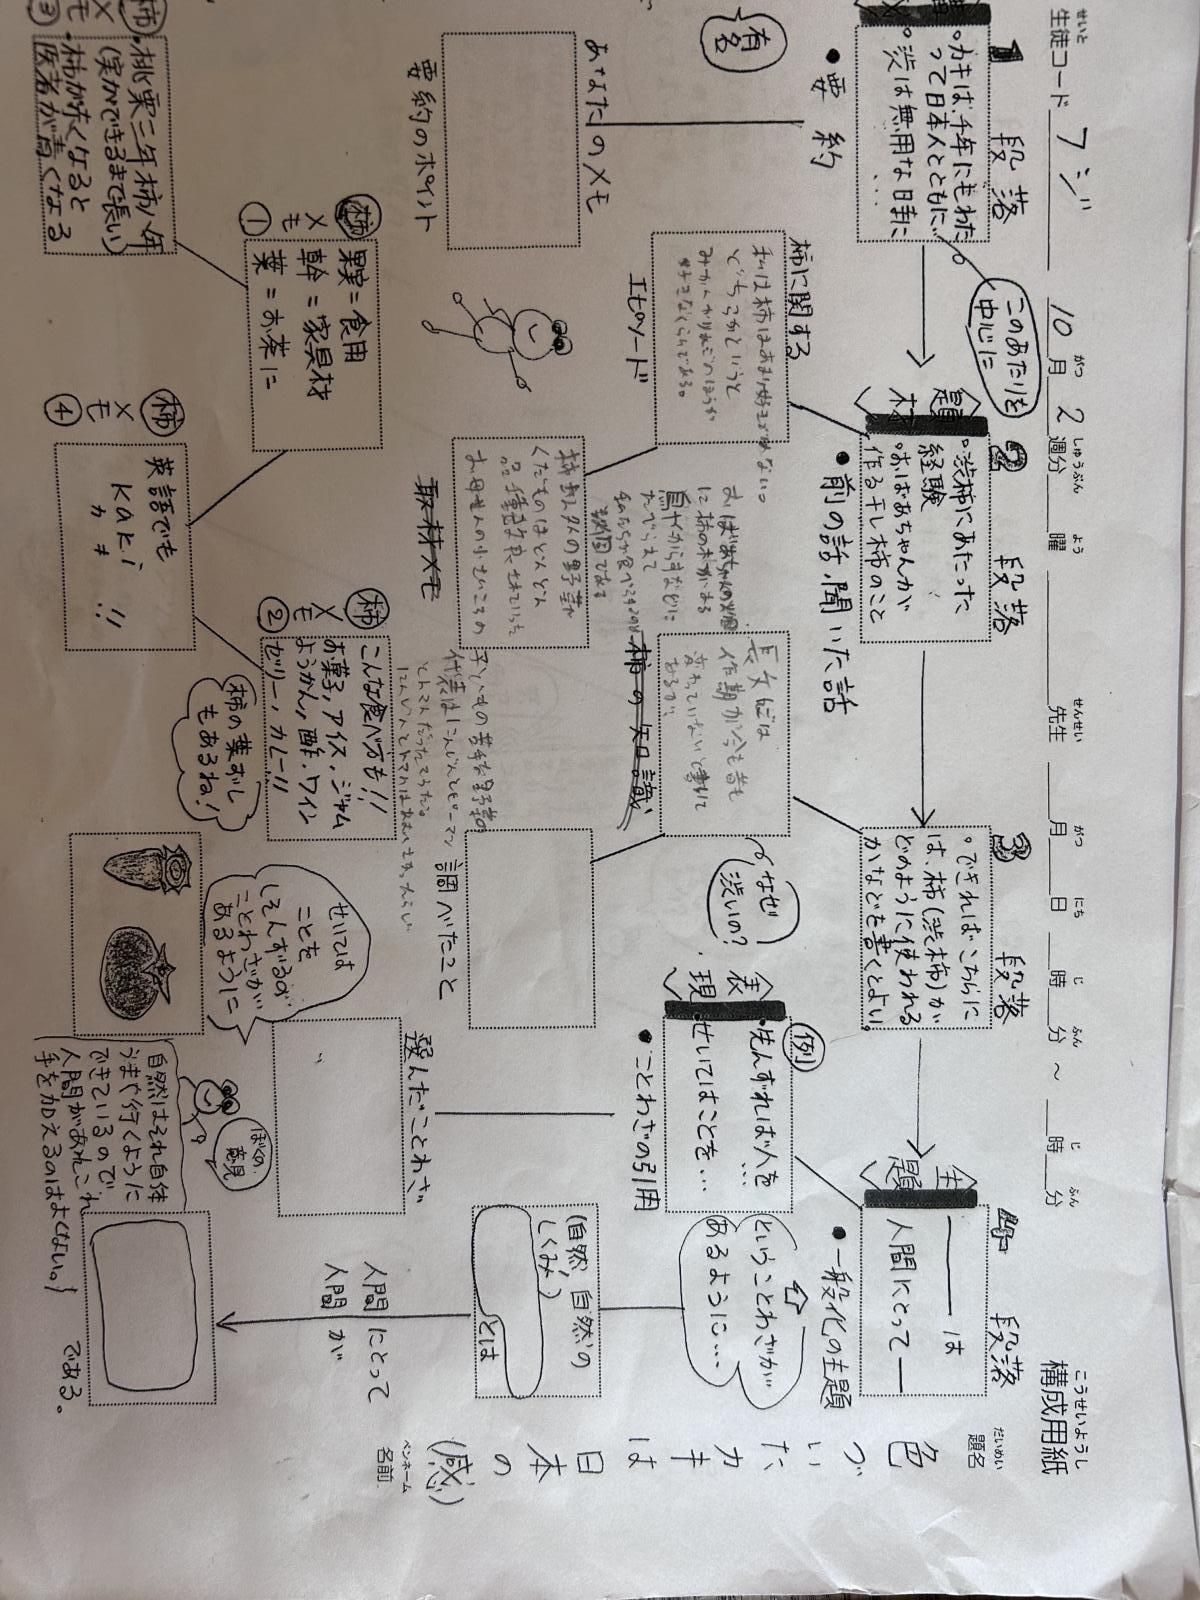 構成用紙
こうせいようし
生徒コード フジ 10月 2週分 曜 先生 月 日 時 分 ～ 時 分
せいと がつ しゅうぶん よう せんせい がつ にち じ ふん じ ふん
題名
だいめい
色づいたカキは日本の(感じ)
ペンネーム
名前
1 段落
・カキは、千年にもわた
って日本人とともに…。
・渋は無用な日射に
…
●要約
このあたりを
中心に
有名
あなたのメモ
要約のポイント
2 段落
〈題材〉
・渋柿にあたった
経験
・おばあちゃんが
作る干し柿のこと
●前の話、聞いた話
柿に関する
エピソード
私は柿はあまり好きではない。
どちらかというと
みかんやりんごのほうが
好きなくらいである。
おばあちゃんの畑
に柿の木がある
鳥やからすなどに
たべられて
取材メモ
くだものはどんどん
品種改良されていった
お母さんの小さいころの
子どもの苦手な野菜の
代表はにんじんとピーマン
3 段落
・できればこちらに
は、柿(渋柿)が
どのように使われる
かなどを書くとよい。
柿の知識
なぜ
渋いの？
調べたこと
〈表現〉
例
・先んずれば人を
…
・せいてはことを…
●ことわざの引用
選んだことわざ
せいては
ことを
しそんずるの
ことわざが
あるように
4 段落
〈主題〉
――は
人間にとって――
●一般化の主題
ということわざが
あるように…
(自然、自然の
しくみ)
とは
人間にとって
人間が
である。
柿メモ①
果実＝食用
幹＝家具材
葉＝お茶に
柿メモ②
こんな食べ方も!!
お菓子、アイス、ジャム
ようかん、酢、ワイン
ゼリー、カレー!!
柿の葉ずし
もあるね!
柿メモ③
・桃栗三年柿八年
(実ができるまで長い)
・柿が赤くなると
医者が青くなる
柿メモ④
英語でも
kaki
カキ
!!
ぼくの
意見
自然はそれ自体
うまく行くように
できているので
人間があれこれ
手を加えるのはよくない。